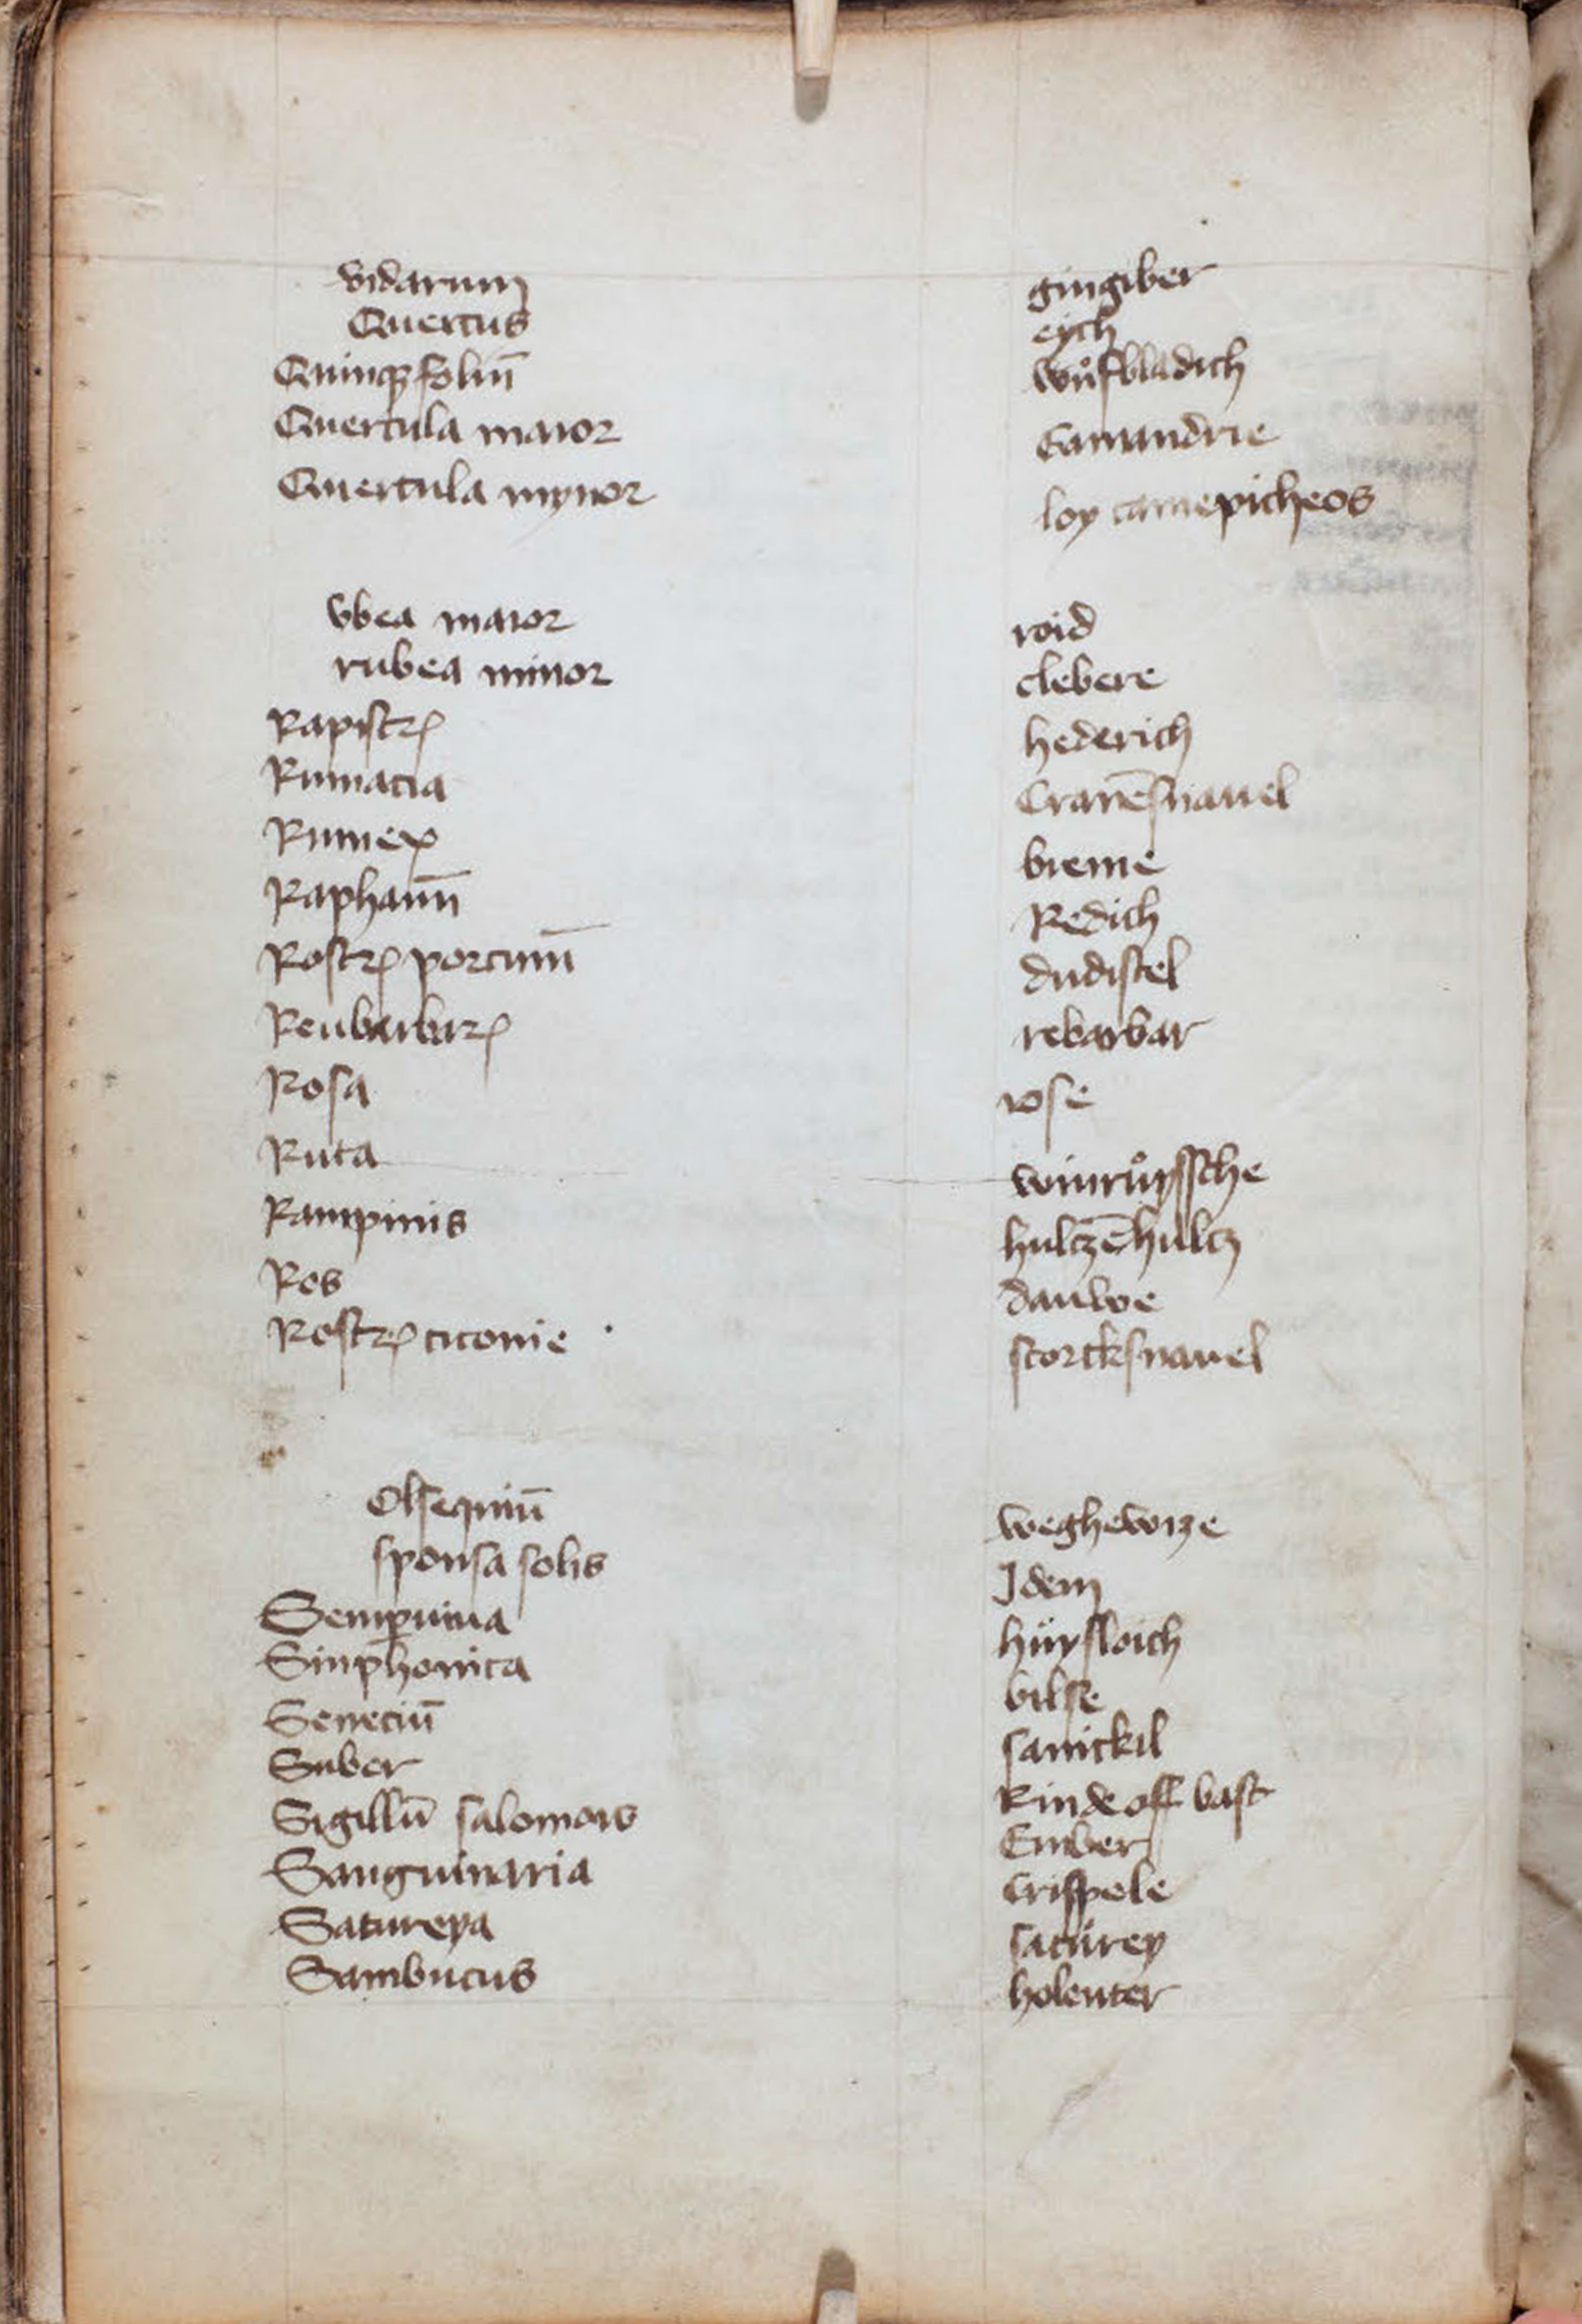 vidarum gingiber
Quercus eych
Quinqꝫfoliū wůfbladich
Quercula maior Gamandrie
Quercula mynor loy camepicheos
vbea maior roid
rubea minor clebere
Rapistrꝝ hederich
Rumacia Cranēsnauel
Rumex breme
Raphanū Redich
Rostrꝝ porcinū dudistel
Reubarbarꝝ rebarbar
Rosa rose
Ruta winrůyssche
Rampinis hultzēhultz
Ros dauwe
Rostrꝝ ciconie storcksnauel
Olsequiū weghewize
sponsa solis Idem
Semꝑuiua hüysloich
Sinphonita bilse
Seneciū sanickil
Suber Rinde off bast
Sigillū salomois Ember
Sanguinaria Crispele
Satureya satůrey
Sambucus holenter